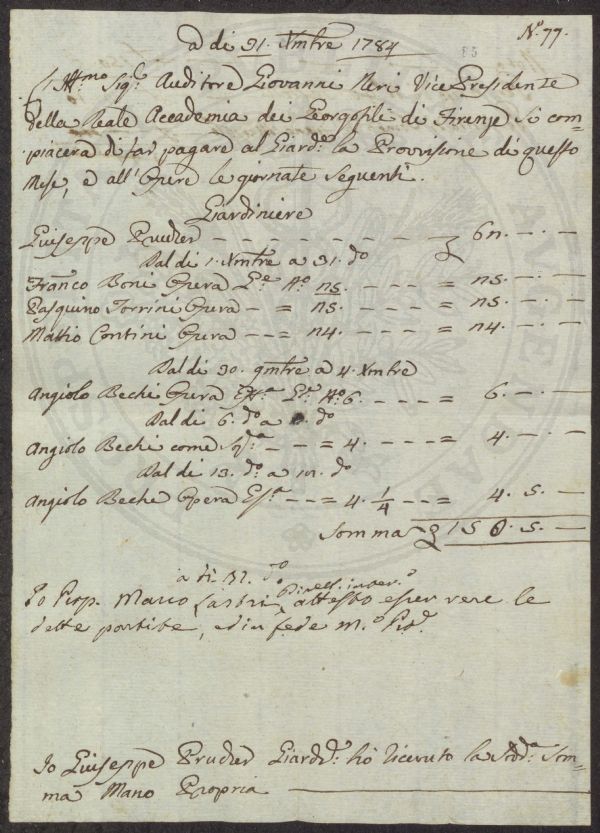 N.º 77.
a di 31. Xmbre 1784
Ill:mo Sig:e Auditore Giovanni Neri Vice Presidente
della Reale Accademia dei Georgofili di Firenze si com-
piacerà di far pagare al Giard:e la Provvisione di questo
Mese, e all'Opere le giornate Seguenti.
Giardiniere
Giuseppe Prucher — — — — 60. — —
Dal di 1. Xmbre a 31. do
Franco Boni Opera Gte No 25. — — — = 25. — —
Pasquino Torrini Opera — = 25. — — — = 25. — —
Mattio Contini Opera — — = 24. — — — = 24. — —
Dal di 30. 9mbre a 4 Xmbre
Angiolo Bechi Opera Gte No 6. — — — = 6. — —
Dal di 6. do a do
Angiolo Bechi come Sa — — = 4. — — — = 4. — —
Dal di 13. do a do
Angiolo Bechi Opera — — = 4. 1/4 — — = 4. 5. —
Somma 5. —
a di 31. do
Io Prop. Marco Lastri attesto esser vere le
dette partite, ed in fede m.o
Io Giuseppe Prucher Giard:e ho ricevuto la Som-
ma Mano Propria